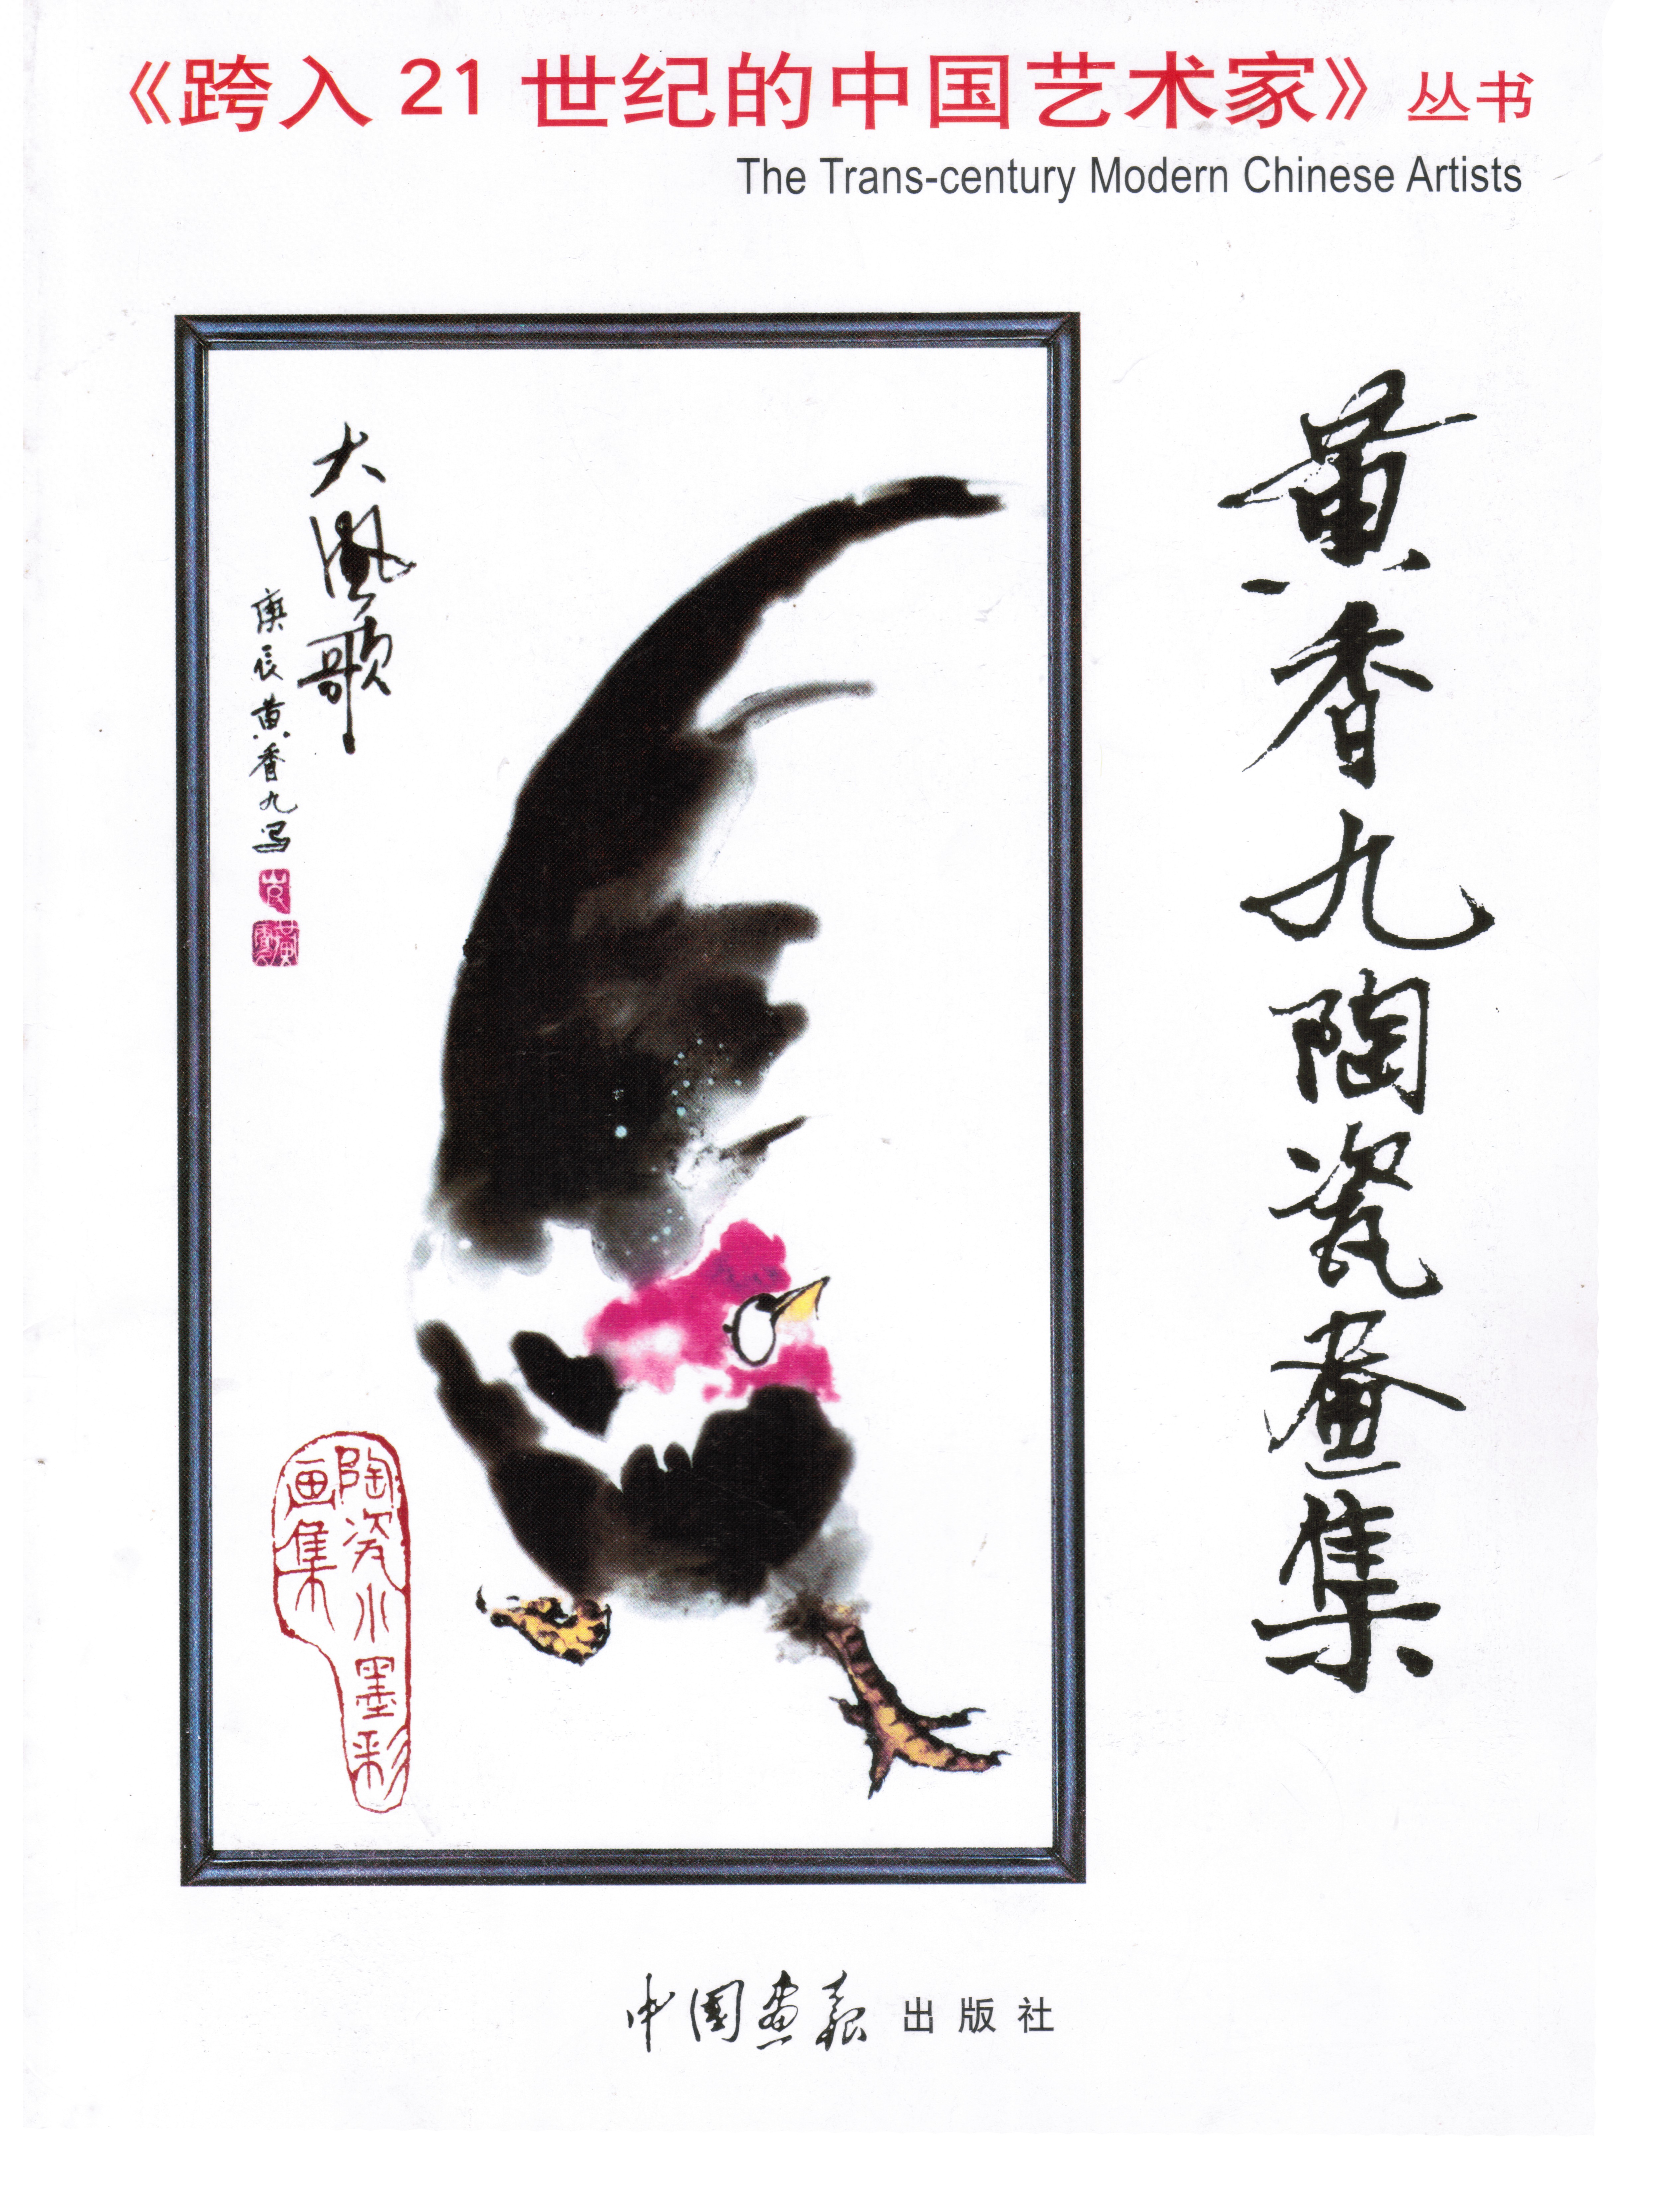 《跨入21世纪的中国艺术家》丛书
The Trans-century Modern Chinese Artists
黄香九陶瓷畫集
大風歌
庚辰黄香九写
陶瓷水墨彩
画集
中国画报出版社